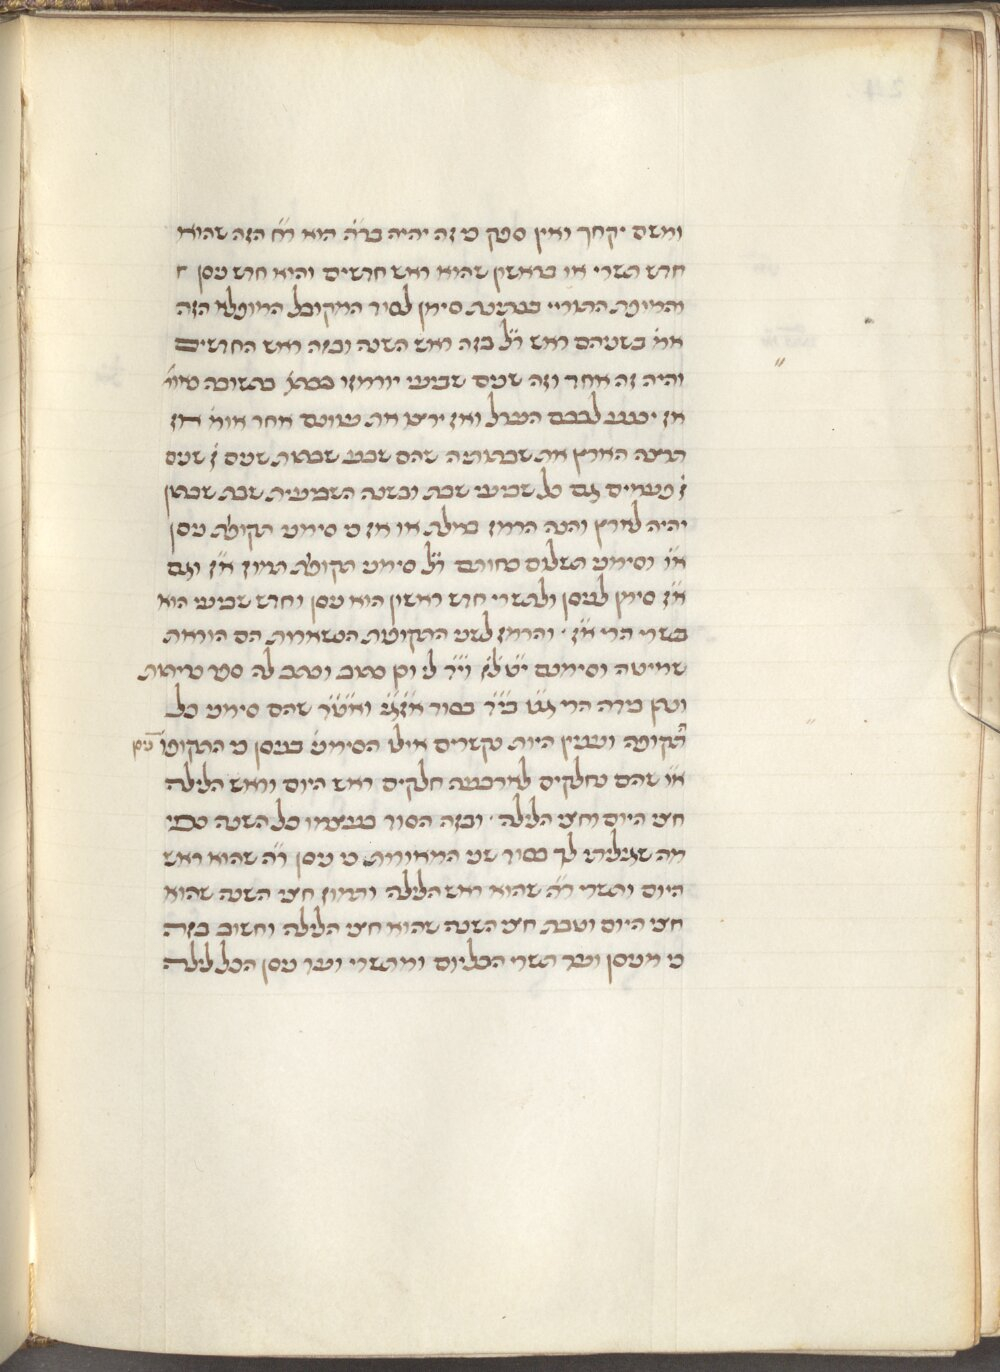 ומשם יקחך ואין ספק כי זה יהיה בר״ה הוא ר״ח הזה שהוא
חדש תשרי או בראשון שהוא ראש חדשים והוא חדש ניסן
והמופת התוריי בנתינת סימן לסוד המקובל המופלא הזה
בשניהם ראש ר״ל בזה ראש השנה ובזה ראש החדשים
והיה זה אחר וזה שנים שביעי יורמזו בתשובה
אז יכנע לבבם הערל ואז ירצו את עונם אחר אומ׳ אז
תרצה הארץ את שבתותיה שהם שבע שבתות שנים ז׳ שנים
ז׳ פעמים גם כל שביעי שבת ובשנה השביעית שבת שבתון
יהיה לארץ והנה הרמז במלת או אז כי סימני תקופת ניסן
א״ו וסימני תשלום כחותם ר״ל סימני תקופת תמוז א״ז וגם
א״ז סימן לניסן ולתשרי חדש ראשון הוא ניסן וחדש שביעי הוא
תשרי הרי א״ז · והרמז לשני התקופות הנשארות הם הוראת
שמיטה וסימנם
הרי בסוד שהם סימני כל
תקופה וענין היות נקשרים אילו הסימני׳ בניסן כי התקופו׳
א״ו שהם נחלקים לארבעה חלקים ראש היום וראש הלילה
חצי היום וחצי הלילה · ובזה הסוד בעצמו כל השנה כפי
מה שגיליתי לך בסוד שני המאורות כי ניסן ר״ה שהוא ראש
היום ותשרי ר״ה שהוא ראש הלילה ותמוז חצי השנה שהוא
חצי היום וטבת חצי השנה שהוא חצי הלילה וחשוב בזה
כי מניסן ועד תשרי הכל יום ומתשרי ועד ניסן הכל לילה